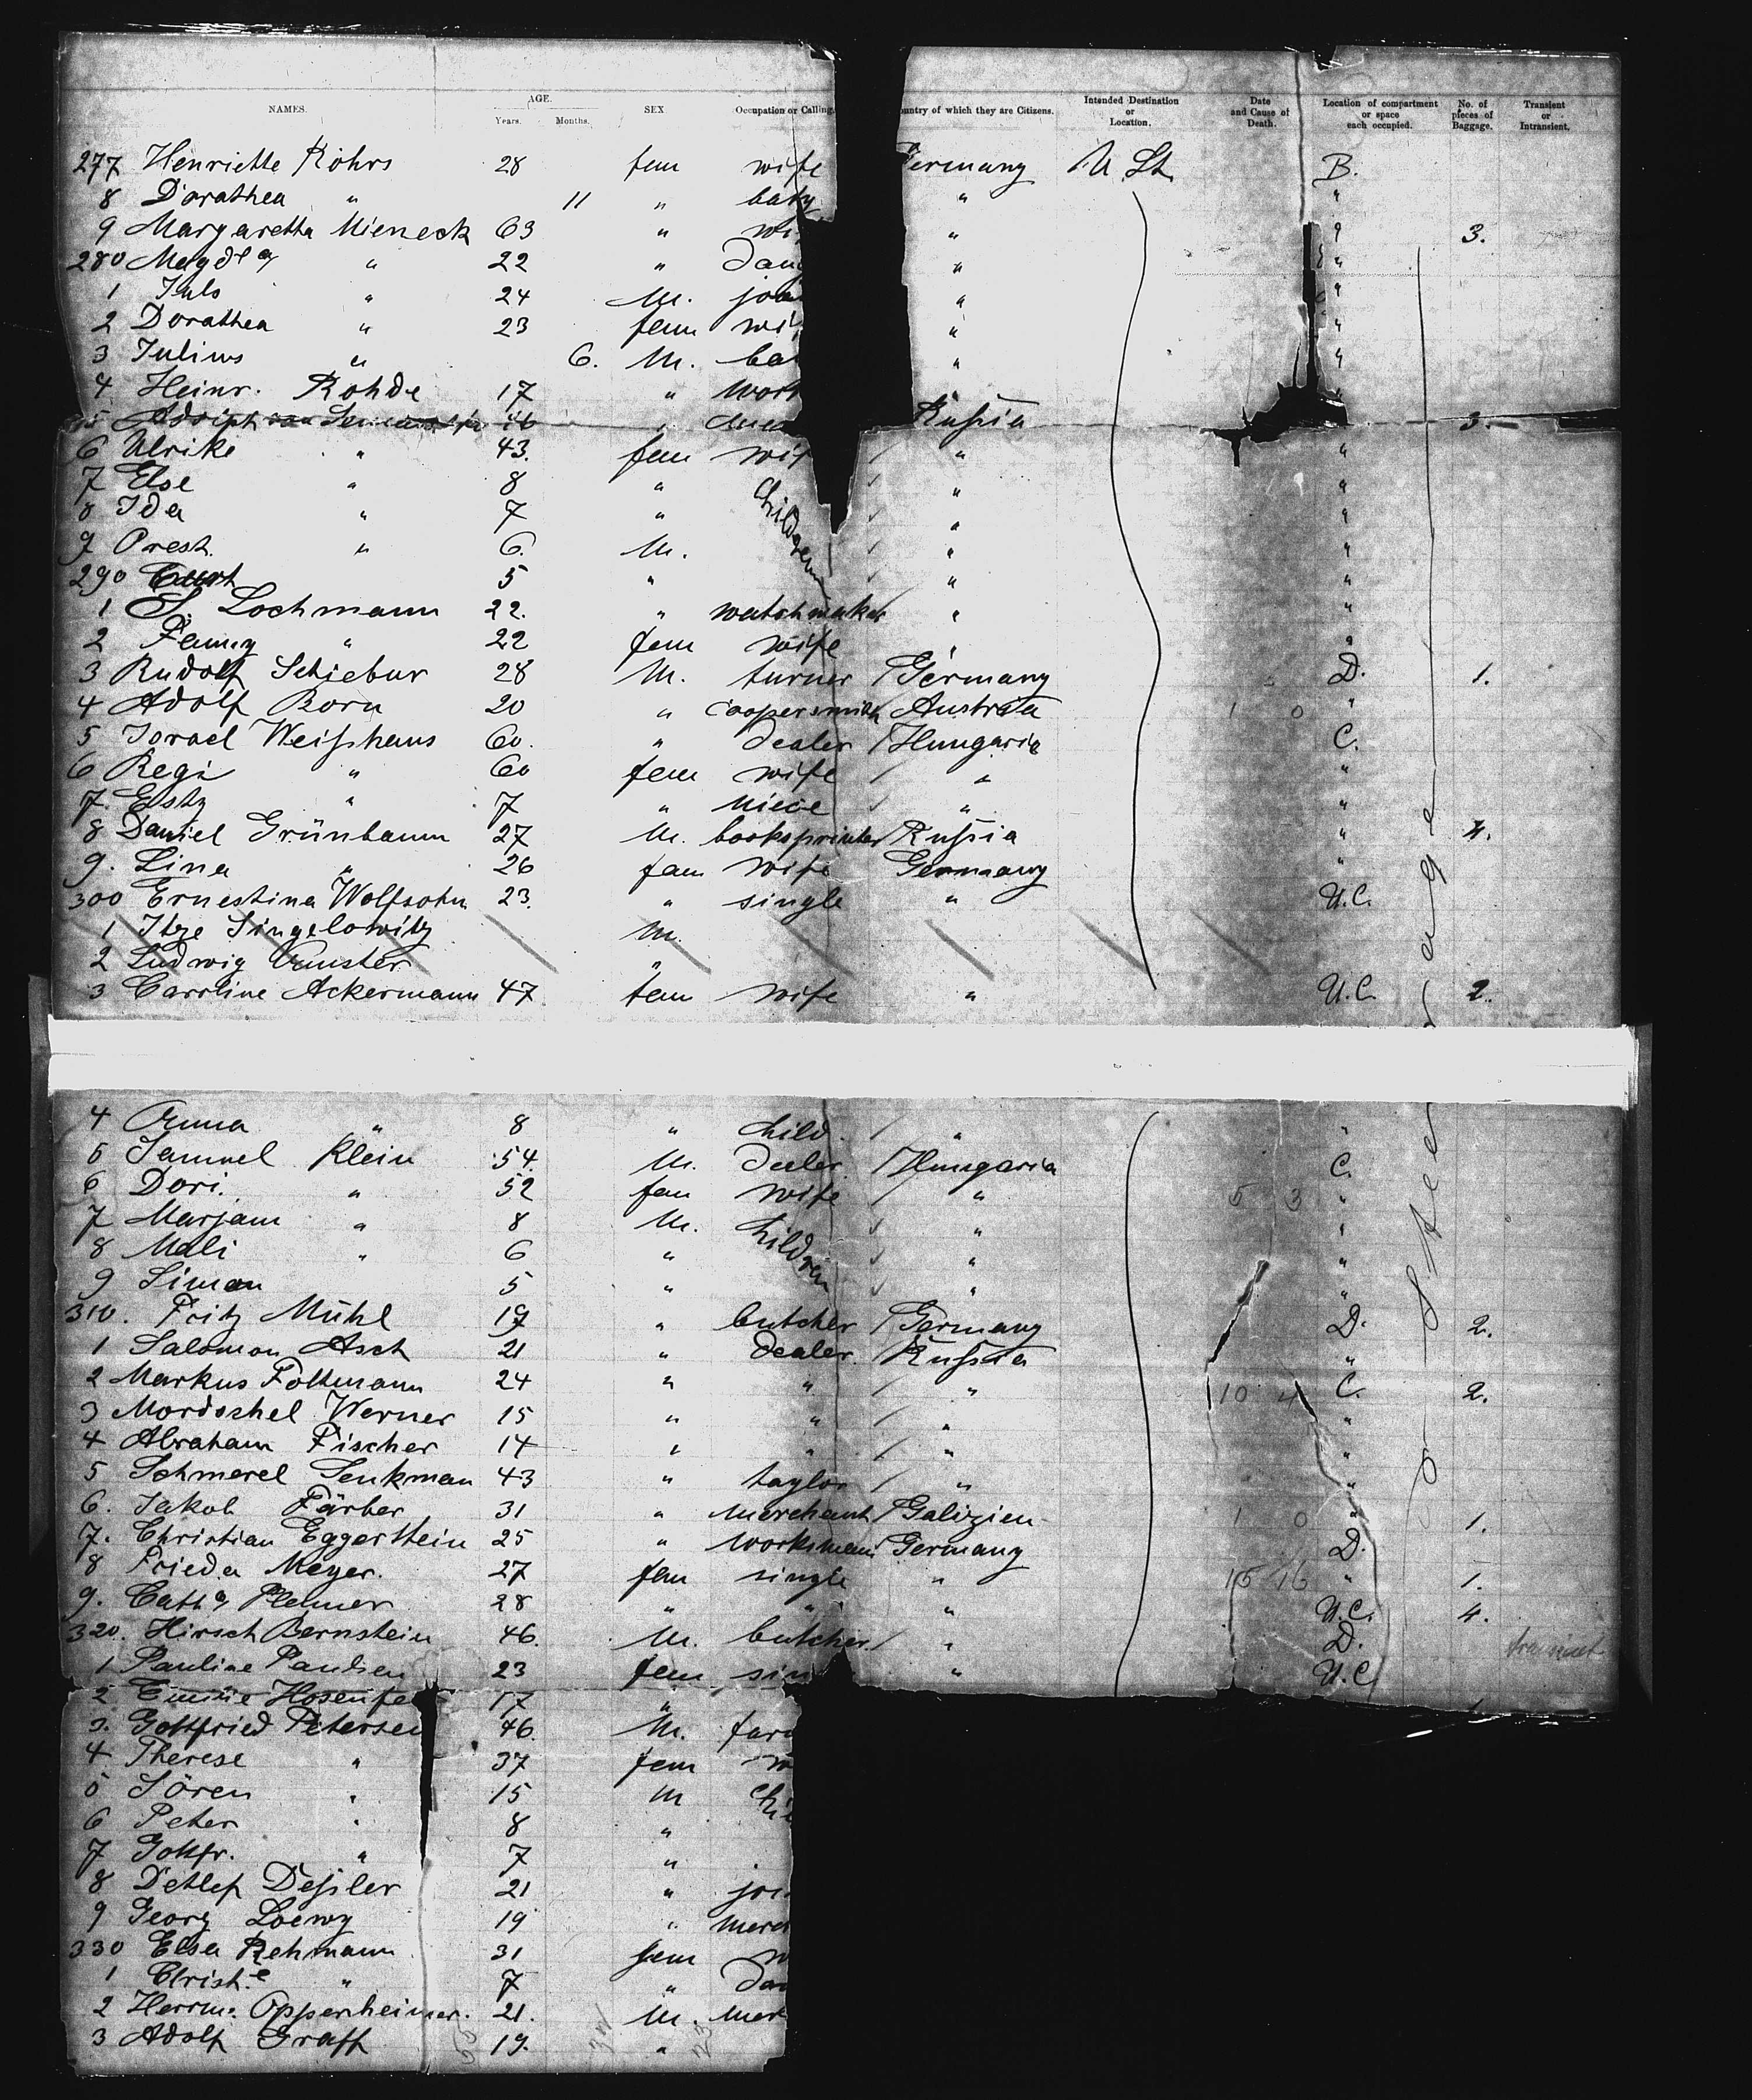 NAMES. AGE. Years. Months. SEX Occupation or Calling. ountry of which they are Citizens. Intended Destination or Location. Date and Cause of Death. Location of compartment or space each occupied. No. of pieces of Baggage. Transient or Intransient.
277 Henriette Röhrs 28 fem wife Germany U. St. B.
8 Dorathea " 11 " baby " "
9 Margaretha Mieneck 63 " wi " " 3.
280 Magdla " 22 " Daug " "
1 Juls " 24 M. joi " "
2 Dorathea " 23 fem wi " "
3 Julius " 6. M. ba " "
4 Heinr. Rohde 17 " Work "
5 Adolph 46 " Russia 3.
6 Ulrike " 43. fem wif " "
7 Else " 8 " Children " "
8 Ida " 7 " " "
9 " 6. M. " "
290 Curt 5 " " "
1 S. Lochmann 22. " watchmaker " "
2 Fanny " 22 fem wife " "
3 Rudolf Schiebur 28 M. turner Germany D. 1.
4 Adolf Born 20 " Coopersmith Austria 1 0 "
5 Israel Weisshaus 60. " Dealer Hungaria C.
6 Regi " 60 fem wife " "
7. Esty " 7 " Niece " "
8 Daniel Grünbaum 27 M. booksprinter Russia " 4.
9. Lina " 26 fem wife Germany "
300 Ernestina Wolfsohn 23. " single " U.C.
1 Itze Singelowitz M.
2 Ludwig "
3 Caroline Ackermann 47 fem wife " U.C. 2.
4 Anna " 8 " Child. " "
5 Samuel Klein 54. M. Dealer Hungaria C.
6 Dori. " 52 fem wife " 5 3 "
7 Marjam " 8 M. Children " "
8 Mali " 6 " " "
9 Simon 5 " " "
310. Fritz Mühl 19 " butcher Germany D. 2.
1 Salomon Asch 21 " Dealer. Russia "
2 Markus Foltmann 24 " " " 10 4 C. 2.
3 Mordschel Werner 15 " " " "
4 Abraham Fischer 14 " " " "
5 Schmerel Senkman 43 " taylor " "
6. Jakob Färber 31 " Merchant Galizien 1 0 " 1.
7. Christian Eggerstein 25 " Worksman Germany D.
8 Frieda Meyer. 27 fem single " 15 16 " 1.
9. Catha Plenner 28 " " " U.C. 4.
320. Hirsch Bernstein 46. M. butcher " D. transient
1 Pauline Paulsen 23 fem sin " U.C.
2 Emilie Hosenfe 17 "
3. Gottfried Petersen 46. M. farm
4 Therese " 37 fem w
5 Sören " 15 M Chi
6 Peter " 8 "
7 Gottfr. " 7 "
8 Detlef Desiler 21 " joi
9 Georg Loewy 19 " Merch
330 Elsa Rehmann 31 fem w
1 Christ.e " 7 " Dau
2 Herrm. Oppenheimer. 21. M. Mer
3 Adolf Graff 19. "
Steerage